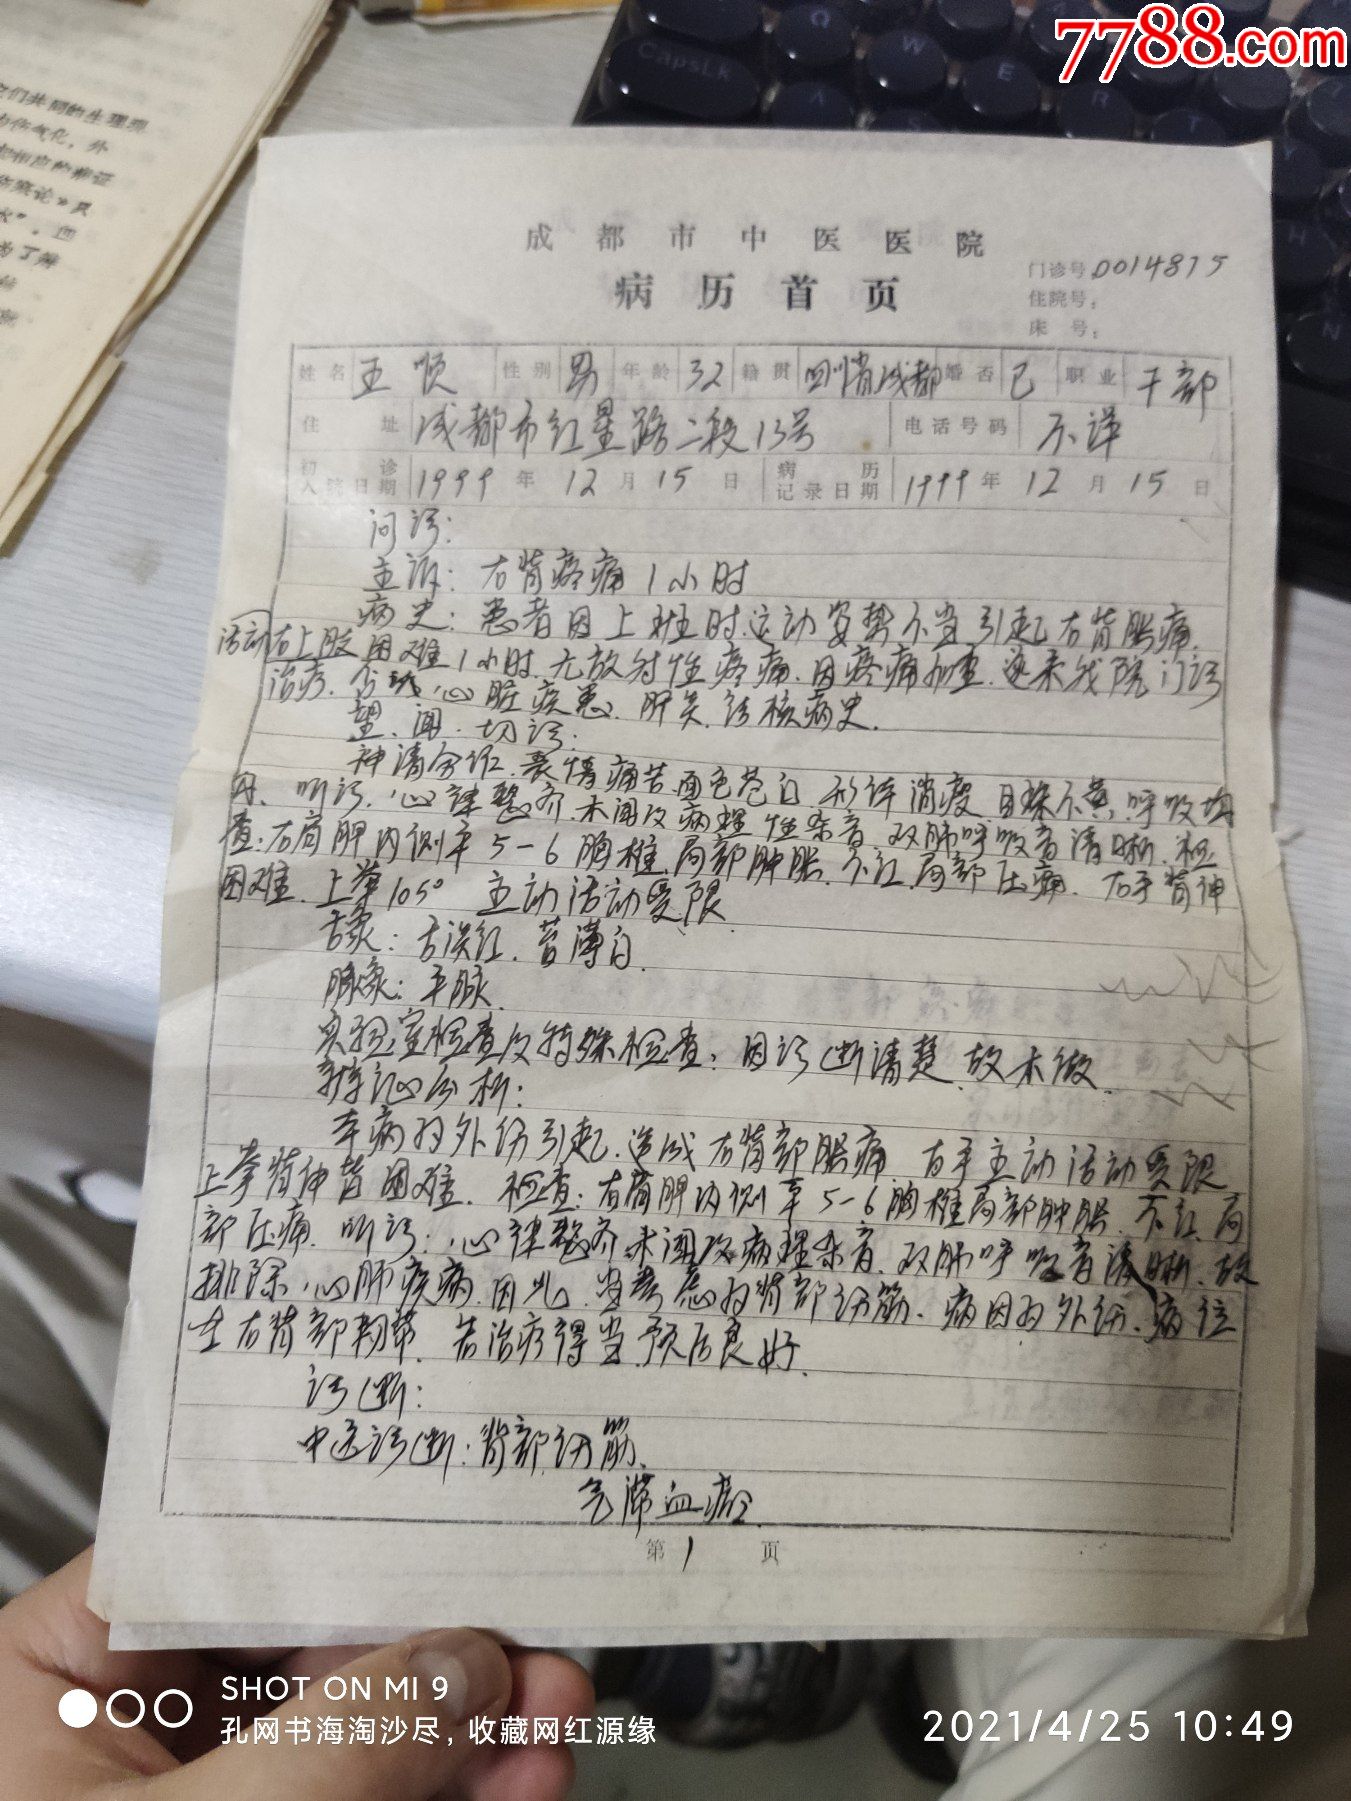 7788.com
CapsLk
W
E
们共同的生理现
伤气化，外
相应的表证
寒论》只
水"，但
为了辨
成都市中医医院
病历首页
门诊号 0014875
住院号：
床号：
姓名 王顺 性别 男 年龄 32 籍贯 四川省成都 婚否 已 职业 干部
住址 成都市红星路二段13号 电话号码 不详
初诊入院日期 1999年12月15日 病历记录日期 1999年12月15日
问诊：
主诉：右背疼痛1小时
病史：患者因上班时运动姿势不当引起右背胀痛.
活动右上肢困难1小时.无放射性疼痛.因疼痛加重.遂来我院门诊
治疗.否认心脏疾患.肝炎.结核病史.
望.闻.切诊：
神清合作.表情痛苦面色苍白.形体消瘦.目珠不黄.呼吸均
匀.听诊.心律整齐.未闻及病理性杂音.双肺呼吸音清晰.检
查：右肩胛内侧平5-6胸椎.局部肿胀.不红.局部压痛.右手背伸
困难.上举105° 主动活动受限.
舌象：舌淡红.苔薄白.
脉象：平脉.
实验室检查及特殊检查：因诊断清楚.故未做.
辨证分析：
本病为外伤引起.造成右背部胀痛 右手主动活动受限
上举背伸皆困难.检查：右肩胛内侧平5-6胸椎局部肿胀.不红.局
部压痛.听诊：心律整齐未闻及病理杂音.双肺呼吸音清晰.故
排除心肺疾病.因此.当考虑为背部伤筋.病因为外伤.病位
在右背部韧带.若治疗得当.预后良好.
诊断：
中医诊断：背部伤筋.
气滞血瘀.
第1页
SHOT ON MI 9
孔网书海淘沙尽，收藏网红源缘
2021/4/25 10:49